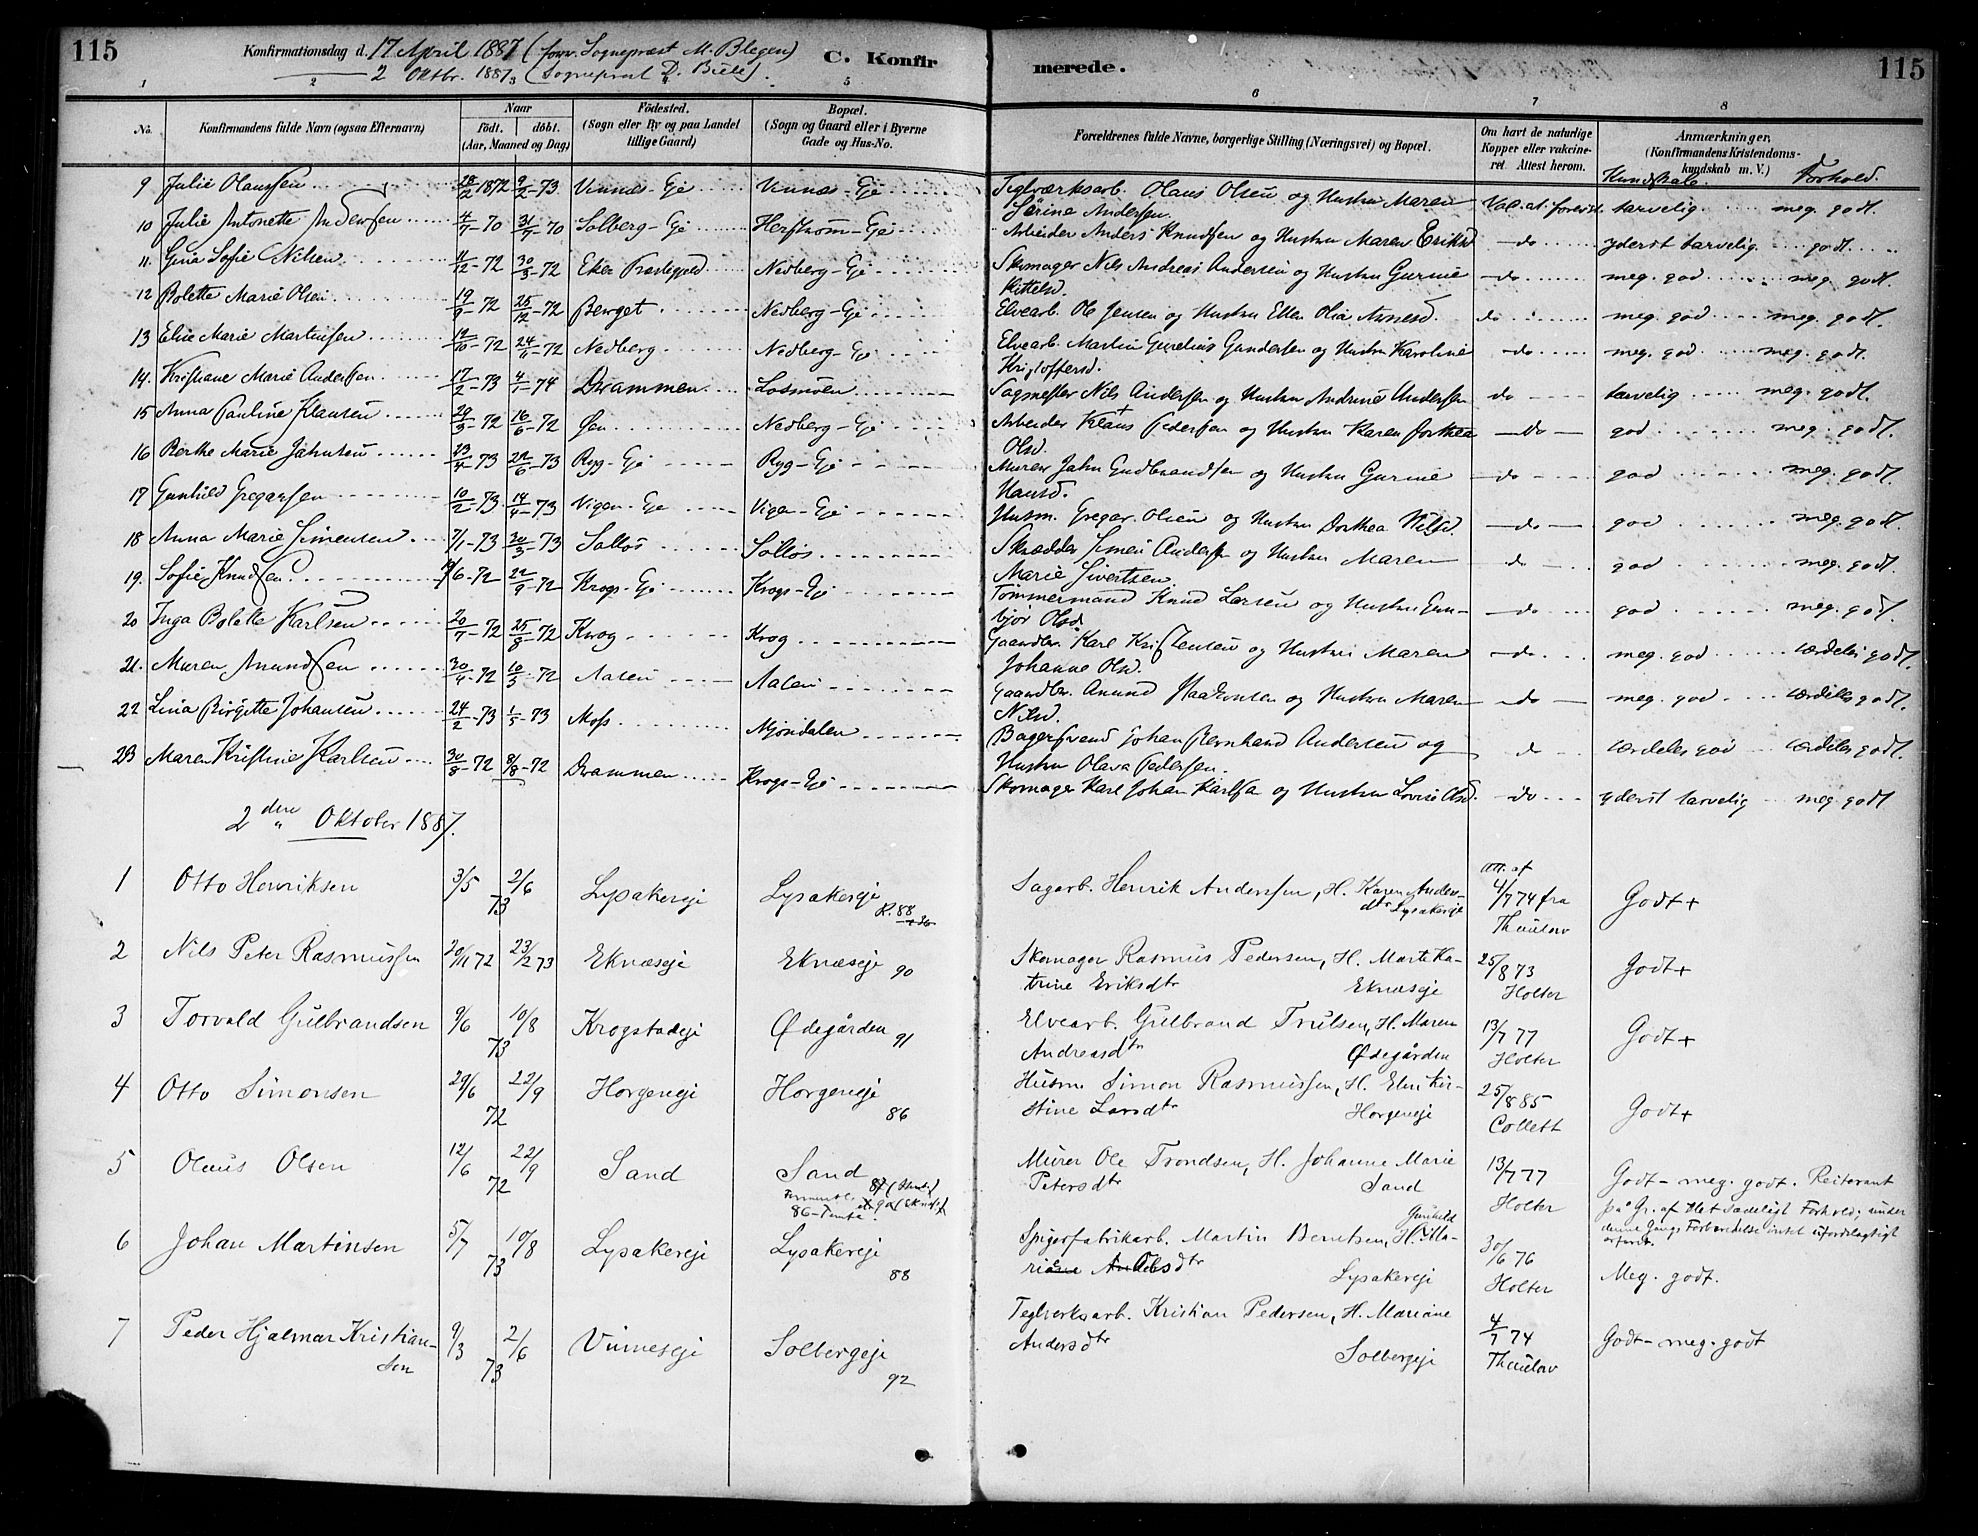 115
Konfirmationsdag d. 17 April 1887 (forr. Sognepræst M. Blegen)
2 Oktbr. 1887 (Sogneprest D. Buli).
C. Konfir
merede.
115
1 2 3 5 6 7 8
No.
Konfirmandens fulde Navn (ogsaa Efternavn)
Naar
födt. | döbt.
(Aar, Maaned og Dag)
Födested.
(Sogn eller By og paa Landet tillige Gaard)
Bopæl.
(Sogn og Gaard eller i Byerne Gade og Hus-No.
Forældrenes fulde Navne, borgerlige Stilling (Næringsvei) og Bopæl.
Om havt de naturlige Kopper eller vakcineret. Attest herom.
Anmærkninger,
(Konfirmandens Kristendomskundskab m. V.)
Kundskab. Forhold.
9 Julie Olaussen 28/2 1872 9/2-73 Vinnæs-Eje Vinnæs-Eje Teglværksarb. Olaus Olsen og Hustru Maren Vac.at.forevist tarvelig meg. godt.
Sörine Andersen
10 Julie Antonette Andersen 4/7-70 31/7-70 Solberg-Eje Herstrom-Eje Arbeider Anders Knudsen og Hustru Maren Eriksd do yderst tarvelig godt.
11. Gina Sofie Nilsen 4/12-72 30/3-72 Eker Præstegjeld Nedberg-Eje Skomager Nils Andreas Andersen og Hustru Gurine do meg. god meg. godt.
Kittelsd.
12 Bolette Marie Olsen 19/9-72 25/12-72 Berget Nedberg-Eje Elvearb. Ole Jensen og Hustru Ellen Olia do meg. god meg. godt.
13 Elise Marie Martinsen 12/10-72 24/11-72 Nedberg Nedberg-Eje Elvearb. Martin Gundersen og Hustru Karoline do meg. god meg. godt.
Kristoffersd.
14. Kristiane Marie Andersen 17/2-73 4/1-74 Drammen Losmoen Sagmester Nils Andersen og Hustru Andrine Andersen do tarvelig meg. godt.
15 Anna Pauline Klausen 29/3-72 16/6-72 Öen Nedberg-Eje Arbeider Klaus Pedersen og Hustru Karen Dorthea do god meg. godt.
Olsd.
16 Berthe Marie Jahnsen 23/4-73 22/6-73 Ryg-Eje Ryg-Eje Murer Jahn Gudbrandsen og Hustru Gurine do god meg. godt.
Hansd.
17 Gunhild Gregarsen 10/2-73 14/4-73 Vigen-Eje Vigen-Eje Husm. Gregar Olsen og Hustru Dorthea Nilsd. do god meg. godt.
18 Anna Marie Simensen 7/1-73 30/3-73 Solløs Solløs Skrædder Simen Andersen og Hustru Maren do god meg. godt.
Marie Sivertsen
19. Sofie Knudsen 7/6-72 22/9-72 Krogs-Eje Krogs-Eje Tømmermand Knud Larsen og Hustru Gun- do god meg. godt.
bjør Olsd.
20 Inga Bolette Karlsen 20/7-72 25/8-72 Krog Krog Gaardbr. Karl Kristensen og Hustru Maren do meg. god særdeles godt.
Johanne Olsd.
21. Maren Anundsen 30/4-72 10/3-72 Aasen Aasen Gaardbr. Anund Haakonsen og Hustru Maren do meg. god særdeles godt.
Nilsd.
22 Lina Birgitte Johansen 24/2-73 1/5-73 Moss Mjøndalen Bagersvend Johan Bernhard Andersen og do særdeles god særdeles godt.
Hustru Olava Pedersen.
23 Maren Kristine Karlsen 30/8-72 8/8-72 Drammen Krogs-Eje Skomager Karl Johan Karlsen og Hustru Lovise Olsd. do yderst tarvelig meg. godt
2den Oktober 1887.
1 Otto Henriksen 3/5 73 2/6 Lysakereje Lysakereje Sagarb. Henrik Anderssen, H. Karen Anders- Att. af
R. 88 dtr Lysakereje 4/7 74 fra Godt+
Thaulow
2 Nils Peter Rasmussen 20/11 72 23/2 73 Eknæseje Eknæseje 90 Skomager Rasmus Pedersen, H. Marte Ka- 25/8 73 Godt+
trine Eriksdtr Eknæseje Holter
3 Torvald Gulbrandsen 9/6 73 10/8 Krogstadeje Ødegården 91 Elvearb. Gulbrand Trulsen, H. Maren 13/7 77 Godt+
Andreasdtr Ødegården Holter
4 Otto Simonsen 29/6 72 22/9 Horgeneje Horgeneje 86 Husm Simon Rasmussen, H. Elen Kir- 25/8 85 Godt+
stine Larsdtr Horgeneje Collett
5 Olaus Olsen 12/6 72 22/9 Sand Sand Murer Ole Trondsen, H. Johanne Marie 13/7 77 Godt - meg. godt. Reiterant
Petersdtr Sand Holter på Gr. af slet sædeligt Forhold; under
denne Gangs Forberedelse intet ufordelagtigt
erfaret.
6 Johan Martinsen 5/7 73 10/8 Lysakereje Lysakereje 88 Spigerfabrikarb. Martin Berntsen, H. Gunhild Ma- 30/6 76 Meg. godt.
Olsdtr Lysakereje Holter
7 Peder Hjalmar Kristian- 9/3 73 2/6 Vinneseje Solbergeje 92 Teglverksarb. Kristian Pedersen, H. Mariane 4/7 74 Godt - meg. godt
sen Andersdtr Solbergeje Thaulow